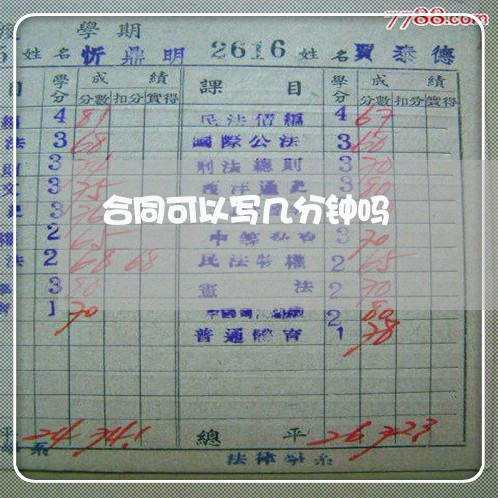 7788.com
學期
姓名 忻鼎明 2616 姓名 賈泰德
目 學分 成績 課目 學分 成績
分數 扣分 實得 分數 扣分 實得
4 81 民法債編 4 67
法 3 68 國際公法 3 60
3 刑法總則 3 70
文 3 75 西洋通史 3 80
合同可以写几分钟吗
權 2 65 3 70
法 2 68 68 民法物權 2 65
3 80 憲法 2 70
1 70 2 80
普通體育 1 78
平 24 74.1 總平 26 72.3
系 法律學系